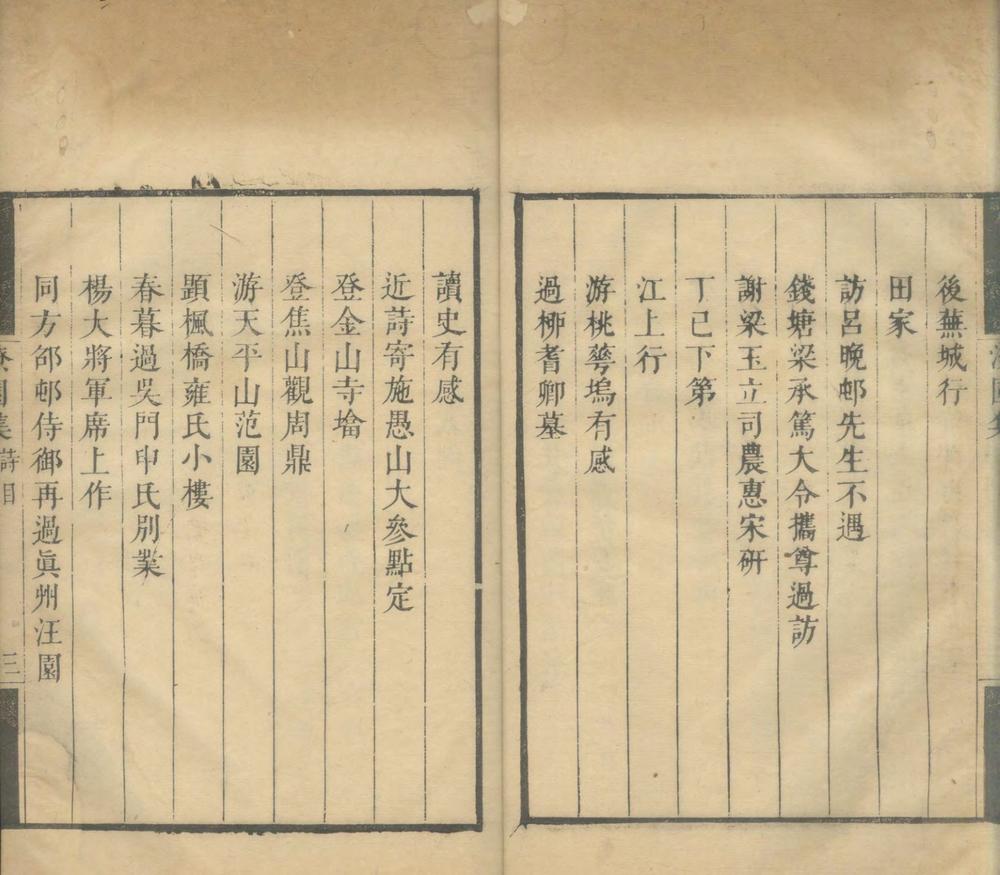 後蕪城行
田家
訪呂晚邨先生不遇
錢塘梁承篤大令攜尊過訪
謝梁玉立司農惠宋研
丁巳下第
江上行
游桃萼塢有感
過栁耆卿墓
讀史有感
近詩寄施愚山大參點定
登金山寺墖
登焦山觀周鼎
游天平山范園
題楓橋雍氏小樓
春暮過吳門申氏別業
楊大將軍席上作
同方邵邨侍御再過眞州汪園
園集 詩目 三